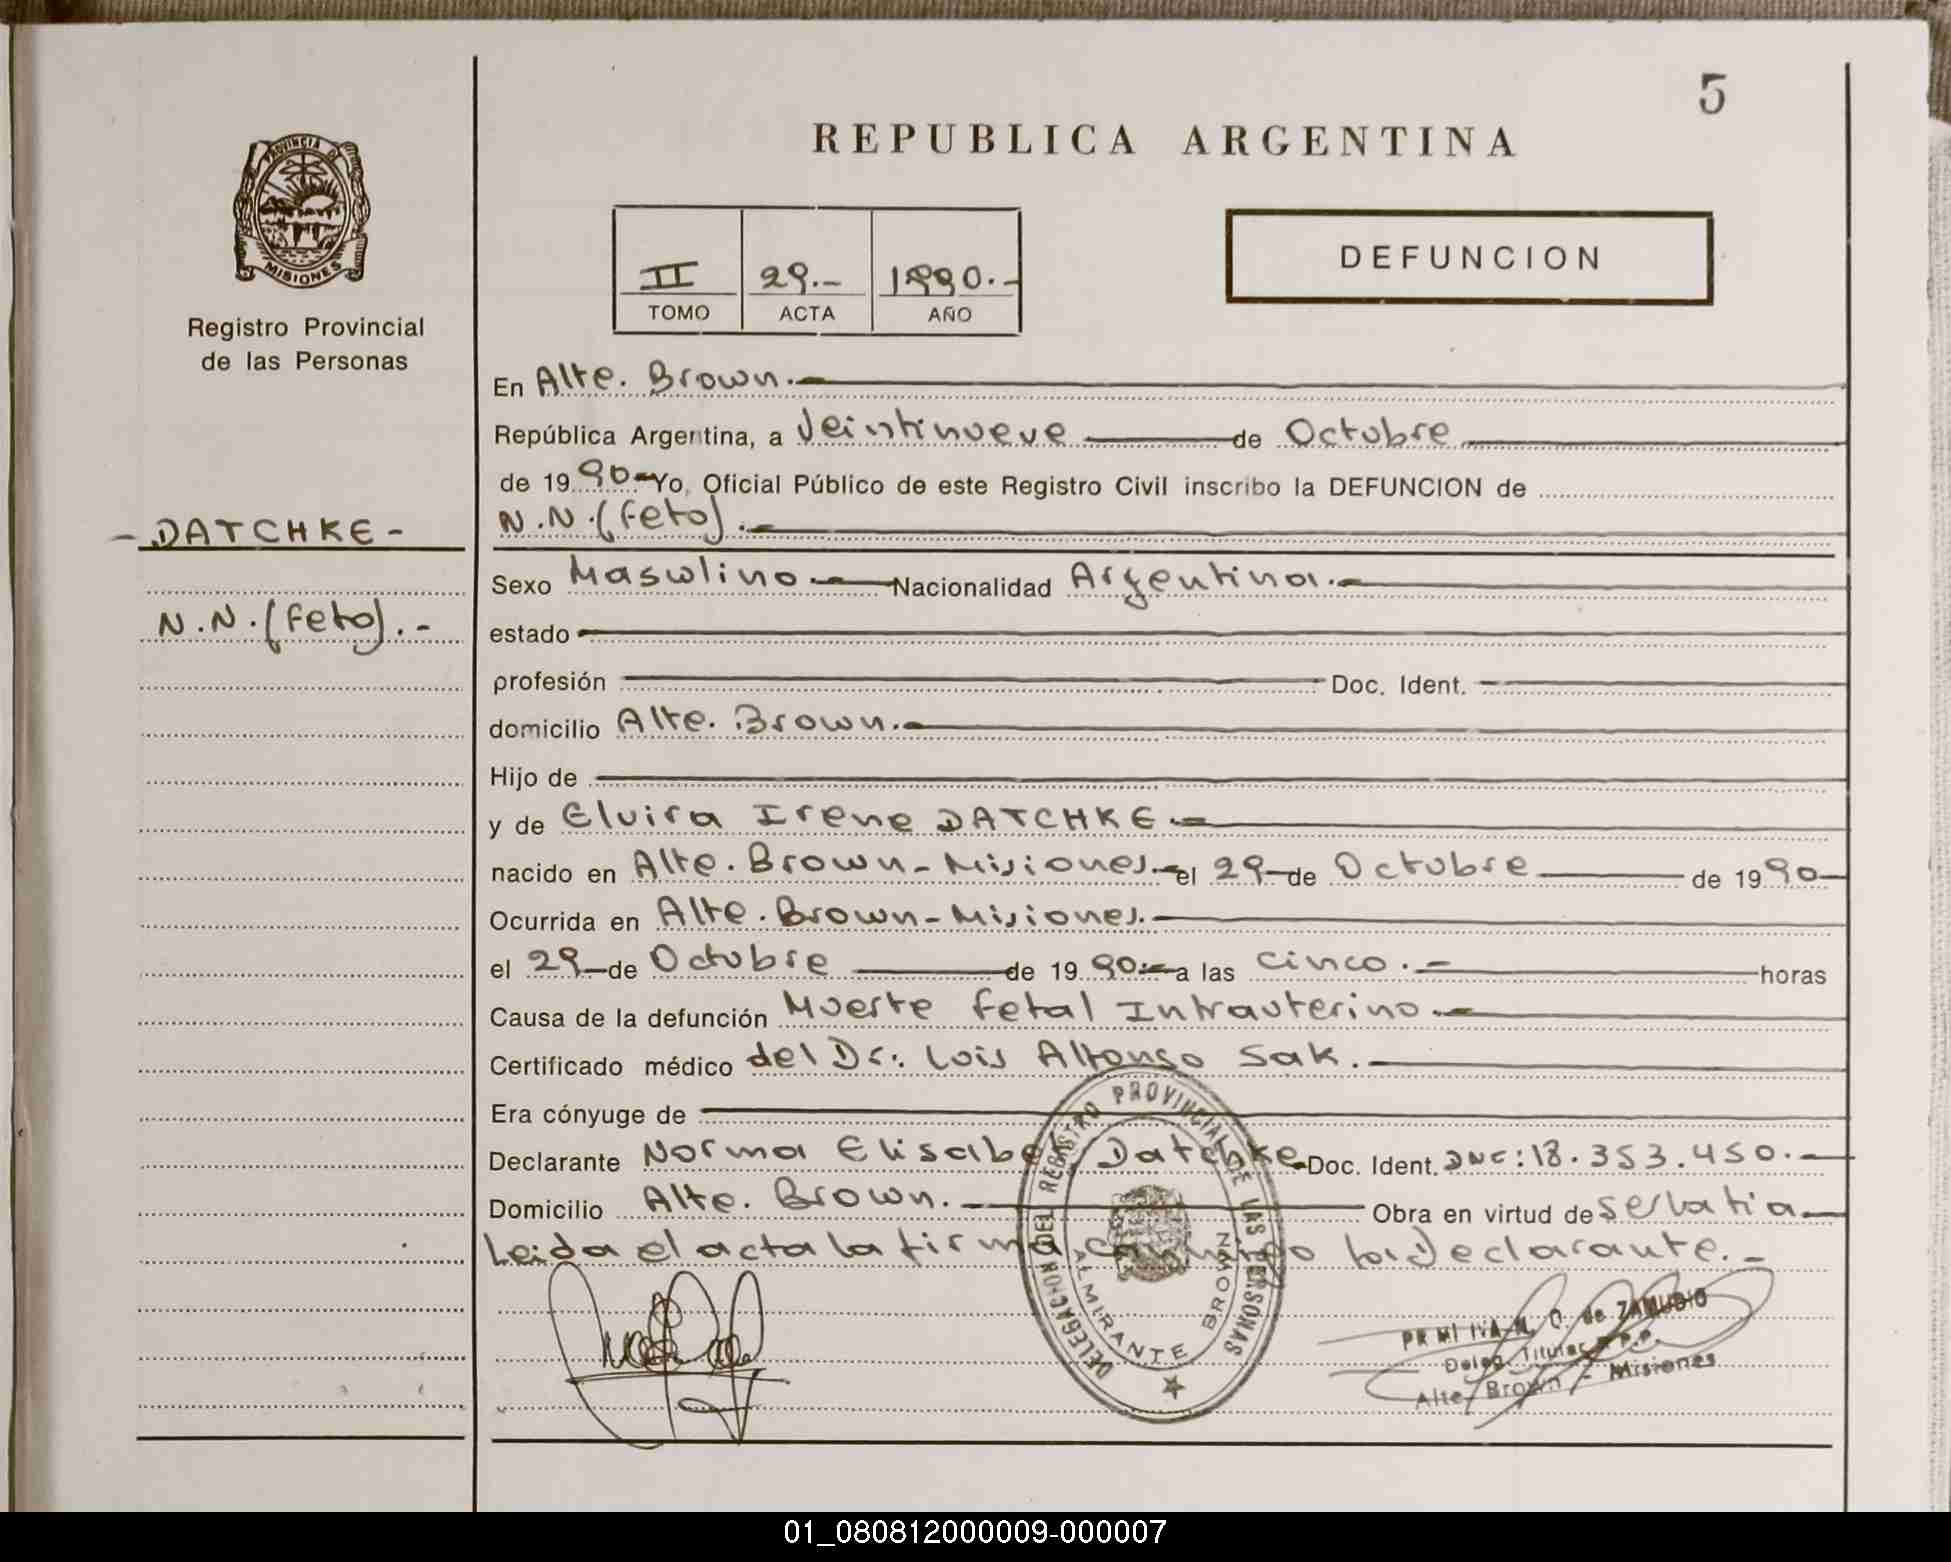 5
REPUBLICA ARGENTINA
PROVINCIA DE
MISIONES
Registro Provincial
de las Personas
II 29.- 1990.-
TOMO ACTA AÑO
DEFUNCION
En Alte. Brown.-
República Argentina, a Veintinueve de Octubre
de 1990 Yo, Oficial Público de este Registro Civil inscribo la DEFUNCION de
- DATCHKE -
N.N. (Feto).-
N.N. (Feto).-
Sexo Masculino.- Nacionalidad Argentina.-
estado
profesión Doc. Ident.
domicilio Alte. Brown.-
Hijo de
y de Elvira Irene DATCHKE.-
nacido en Alte. Brown-Misiones.- el 29 de Octubre de 1990
Ocurrida en Alte. Brown-Misiones.-
el 29 de Octubre de 1990.- a las cinco.- horas
Causa de la defunción Muerte Fetal Intrauterino.-
Certificado médico del Dr. Luis Alfonso Sak.-
Era cónyuge de
Declarante Norma Elisabet Datchke Doc. Ident. DNI: 18.353.450.-
Domicilio Alte. Brown.- Obra en virtud de
Leida el acta la firma conmigo la declarante.-
DELEGACION DEL REGISTRO PROVINCIAL DE LAS PERSONAS
ALMIRANTE BROWN
de ZAMUDIO
Deleg. Titular R.P.P.
Alte. Brown - Misiones
01_080812000009-000007